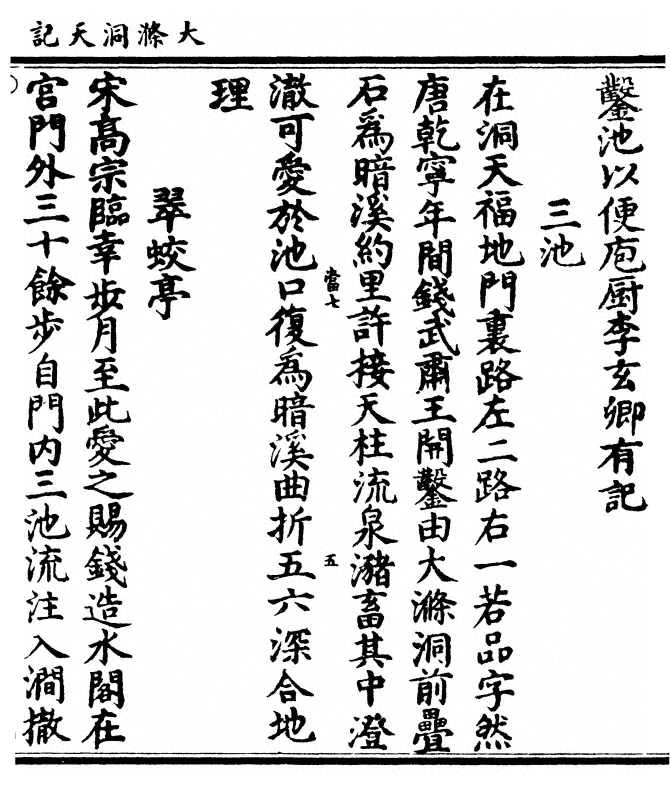 大滌洞天記
鑿池以便庖厨李玄卿有記
三池
在洞天福地門裏路左二路右一若品字然
唐乾寧年間錢武肅王開鑿由大滌洞前疊
石爲暗溪約里許接天柱流泉瀦畜其中澄
澈可愛於池口復爲暗溪曲折五六深合地
當七
五
理
翠蛟亭
宋高宗臨幸步月至此愛之賜錢造水閣在
宮門外三十餘步自門内三池流注入澗撒